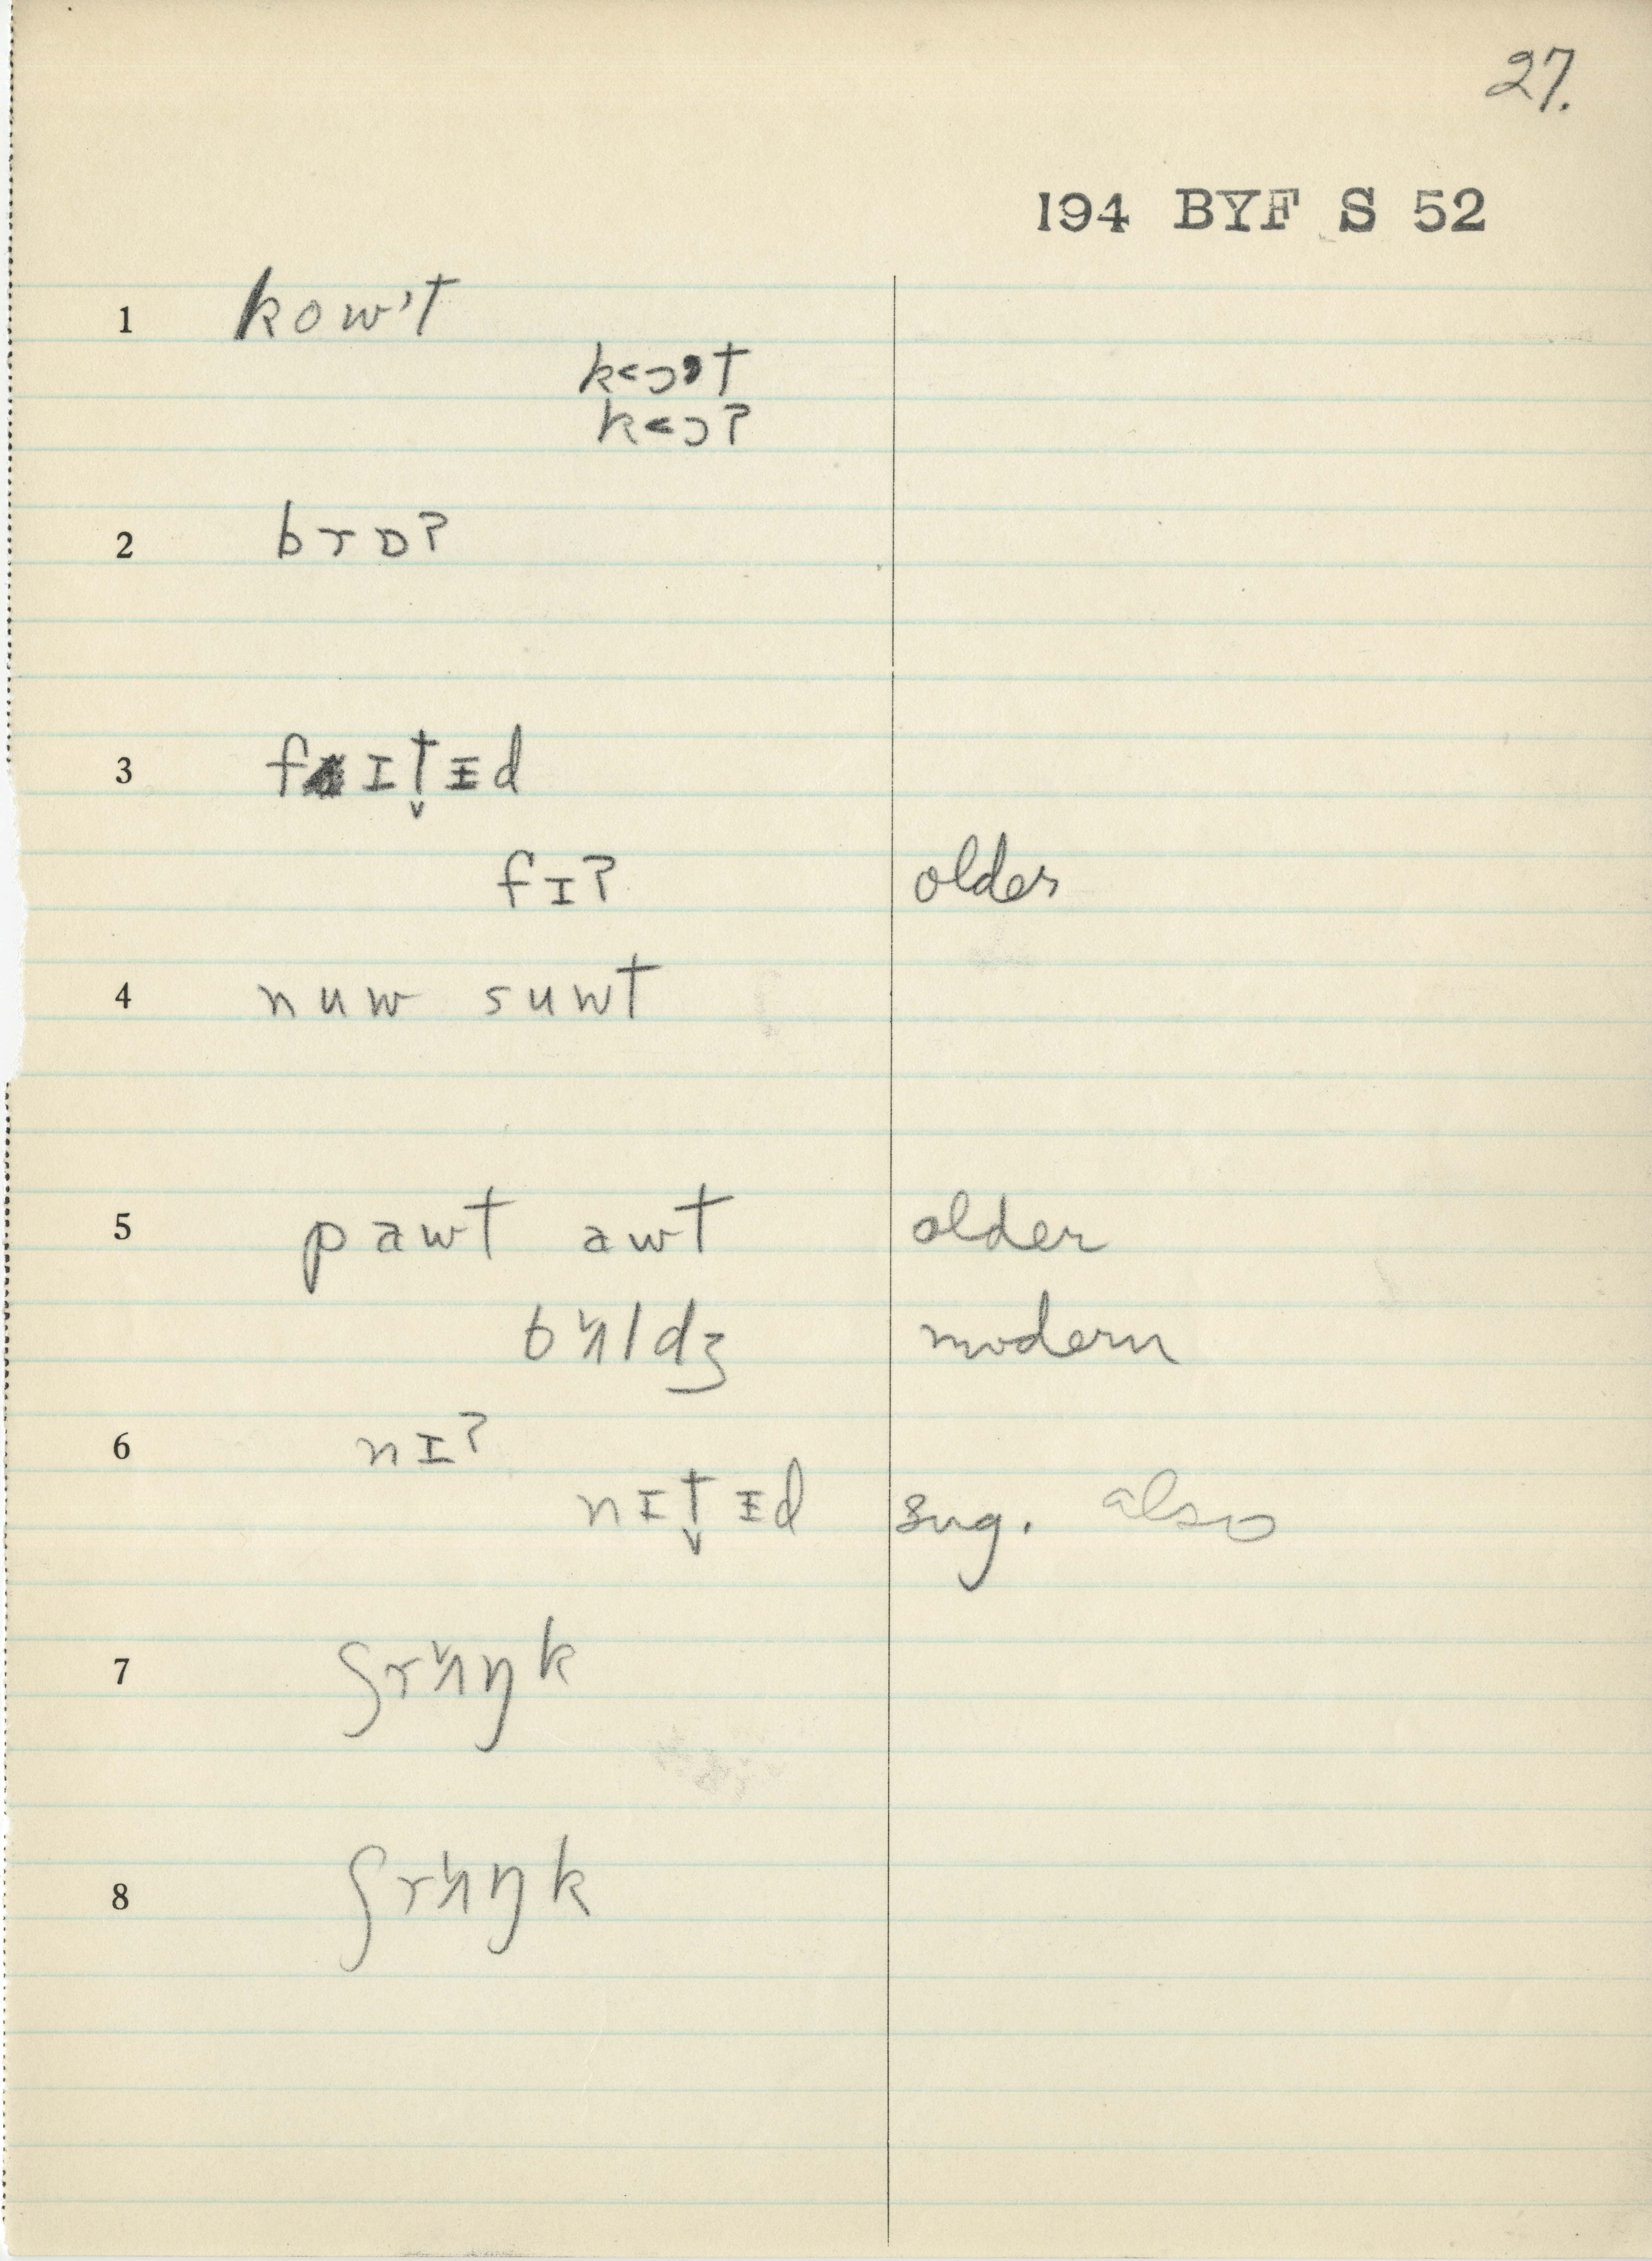 27.
194 BYF S 52
1 kow't
k<ɔʼt
k<ɔʔ
2 brɒʔ
3 fɪt̬ᵻd
fɪʔ older
4 nuw suwt
5 pawt awt older
bʌldʒ modern
6 nɪʔ
nɪt̬ᵻd sug. also
7 ʃrʌŋk
8 ʃrʌŋk